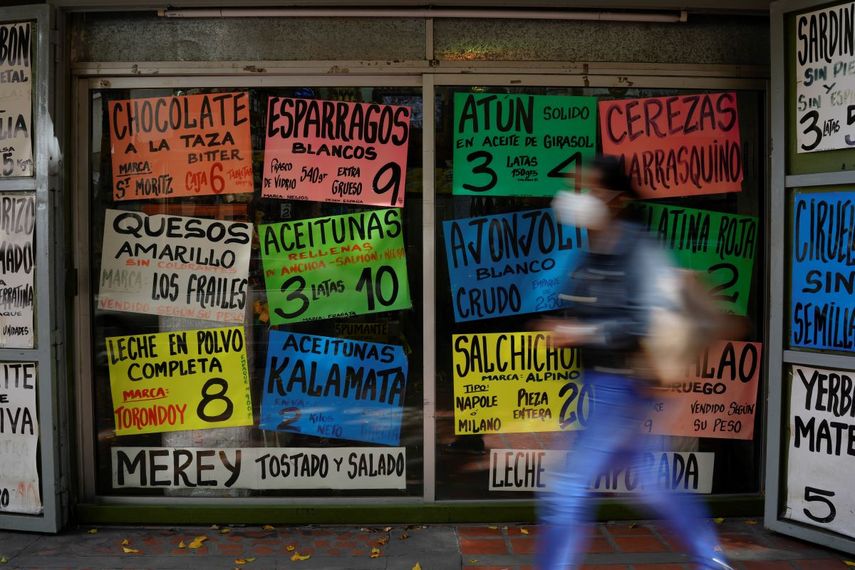 BÓN
ETAL
LIA
5
RIZO
MADO
ERRATINA
UNIDADES
ITE
IVA
CHOCOLATE
A LA TAZA
BITTER
MARCA:
ST MORITZ
CAJA 6
ESPÁRRAGOS
BLANCOS
FRASCO
DE VIDRIO
540gr
EXTRA
GRUESO
9
QUESOS
AMARILLO
SIN COLORANTES
MARCA:
LOS FRAILES
VENDIDO SEGÚN SU PESO
ACEITUNAS
RELLENAS
DE ANCHOA-SALMÓN
3 LATAS 10
MARCA: FRAGATA
SPUMANTE
LECHE EN POLVO
COMPLETA
MARCA:
TORONDOY
8
ACEITUNAS
KALAMATA
2 KILOS
NETO
MEREY TOSTADO Y SALADO
ATÚN SOLIDO
EN ACEITE DE GIRASOL
3 LATAS 4
CEREZAS
MARRASQUINO
AJONJOLÍ
BLANCO
CRUDO
LATINA ROJA
2
SALCHICHÓN
MARCA: ALPINO
TIPO:
NAPOLE
Ó
MILANO
PIEZA
ENTERA
20
LAO
RUEGO
VENDIDO SEGÚN
SU PESO
LECHE
PORADA
SARDIN
SIN PIE
Y
3 LATAS 5
CIRUEL
SIN
SEMILLA
YERB
MATE
5